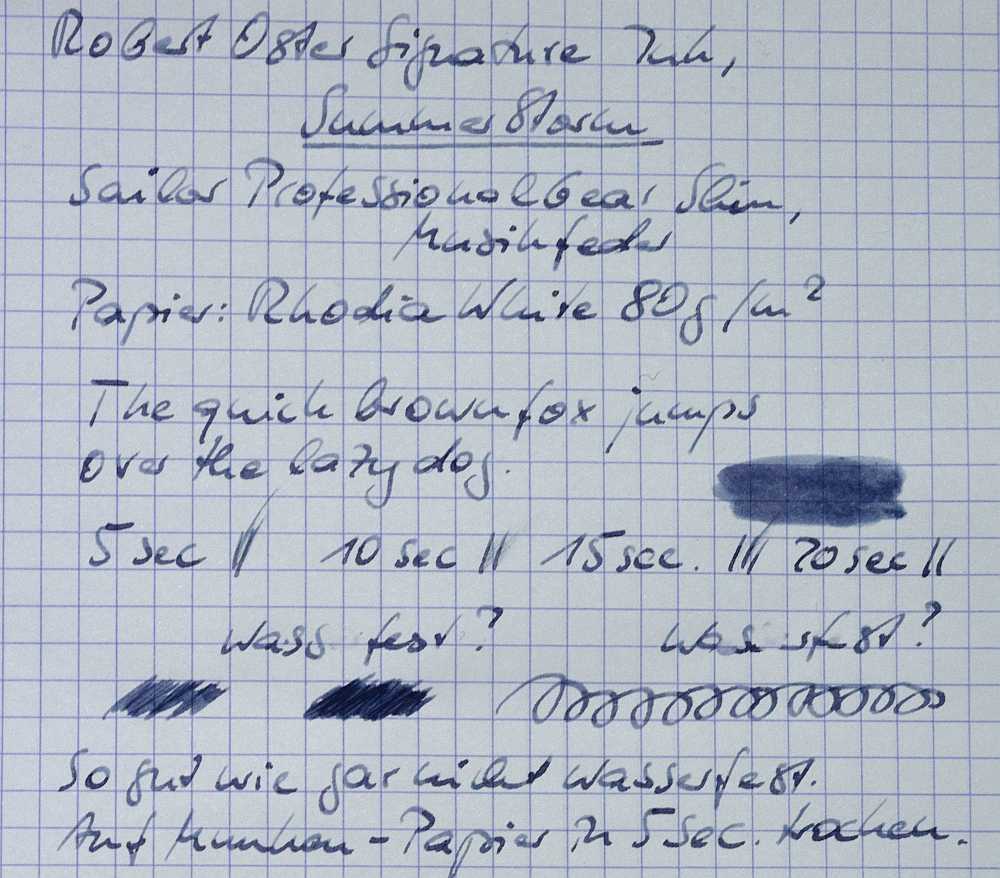 Robert Oster Signature Ink,
Summer Storm
Sailor Professional Gear Slim,
Musikfeder
Papier: Rhodia White 80g/m²
The quick brown fox jumps
over the lazy dog.
5 sec || 10 sec || 15 sec. ||| 20 sec ||
wass fest? was rfest?
So gut wie gar nicht wasserfest.
Auf Munken-Papier in 5 Sec. trocken.